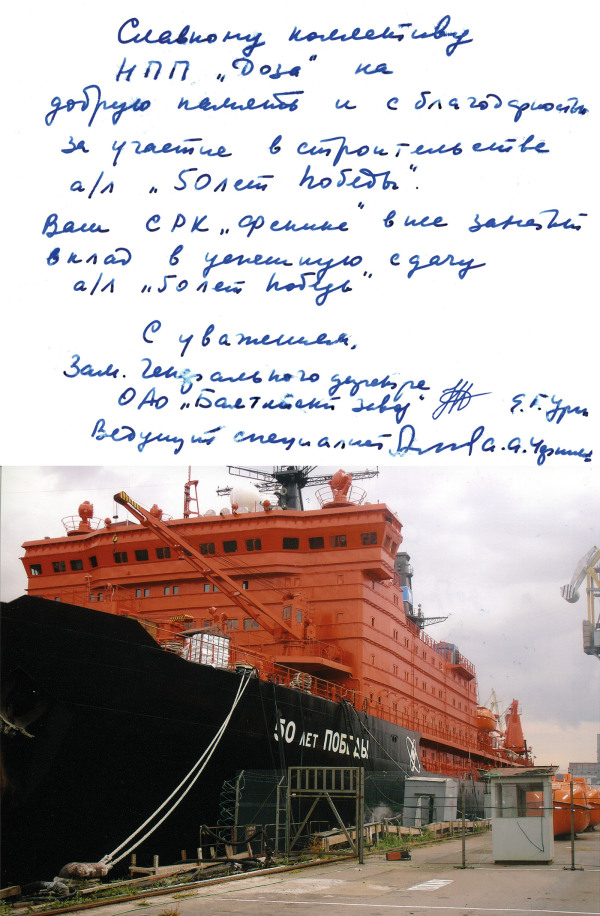 Славному коллективу
НПП „Доза“ на
добрую память и с благодарностью
за участие в строительстве
а/л „50 лет Победы“.
Ваш СРК „Феникс“ внес заметный
вклад в успешную сдачу
а/л „50 лет Победы“
С уважением,
Зам. Генерального директора
ОАО „Балтийский завод“ Я.Г.
Ведущий специалист А.А.
50 ЛЕТ ПОБЕДЫ